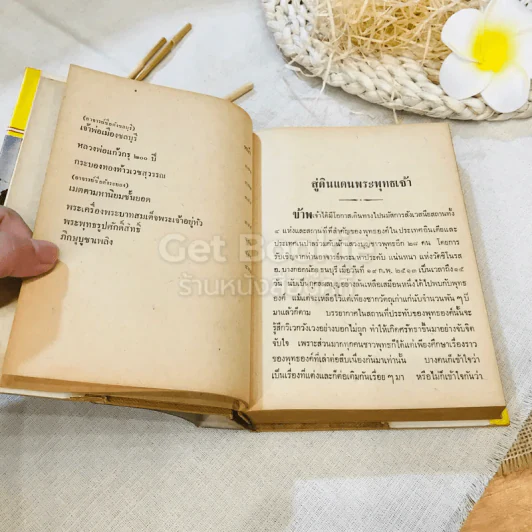 (อาจารย์ชื่อดังชลบุรี)
เจ้าพ่อเมืองชลบุรี
หลวงพ่อแก้วกรุ ๒๐๐ ปี
กระบองทองท้าวเวชสุวรรณ
เมตตามหานิยมชั้นยอด
พระเครื่องพระบาทสมเด็จพระเจ้าอยู่หัว
พระพุทธรูปศักดิ์สิทธิ์
ภิกษุบูชาเพลิง
สู่ดินแดนพระพุทธเจ้า
ข้าพเจ้าได้มีโอกาสเดินทางไปนมัสการสังเวชนียสถานทั้ง
๔ แห่งและสถานที่ที่สำคัญของพุทธองค์ในประเทศอินเดียและ
ประเทศเนปาลร่วมกับคณะแสวงบุญชาวพุทธอีก ๒๘ คน โดยการ
รับเชิญจากท่านอาจารย์พระมหาประดับ แน่นหนา แห่งวัดชีโนรส
อ. บางกอกน้อย ธนบุรี เมื่อวันที่
มาแล้วก็ตาม บรรยากาศในสถานที่ประทับของพุทธองค์นั้นจะ
รู้สึกวิเวกวังเวงอย่างบอกไม่ถูก ทำให้เกิดศรัทธาขึ้นมาอย่างจับจิต
จับใจ เพราะส่วนมากทุกคนชาวพุทธก็ได้แก่เพียงศึกษาเรื่องราว
ของพุทธองค์ที่เล่าต่อสืบเนื่องกันมาเท่านั้น บางคนก็เข้าใจว่า
เป็นเรื่องที่แต่งและก็ต่อเติมกันเรื่อย ๆ มา หรือไม่ก็เข้าใจกันว่า
Get Book
ร้านหนังสือ